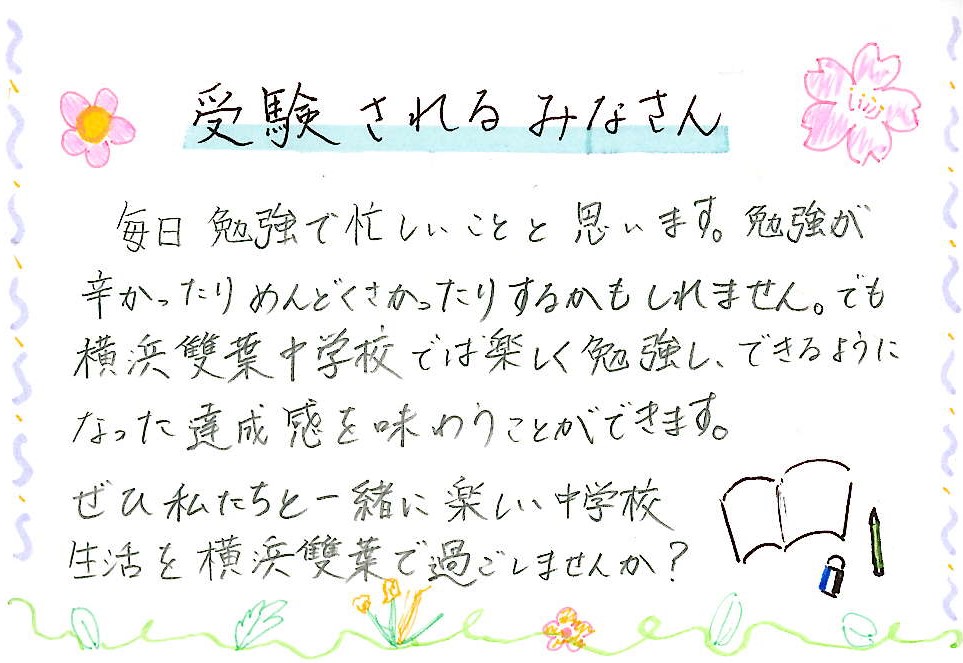 受験されるみなさん
毎日勉強で忙しいことと思います。勉強が
辛かったりめんどくさかったりするかもしれません。でも
横浜雙葉中学校では楽しく勉強し、できるように
なった達成感を味わうことができます。
ぜひ私たちと一緒に楽しい中学校
生活を横浜雙葉で過ごしませんか？